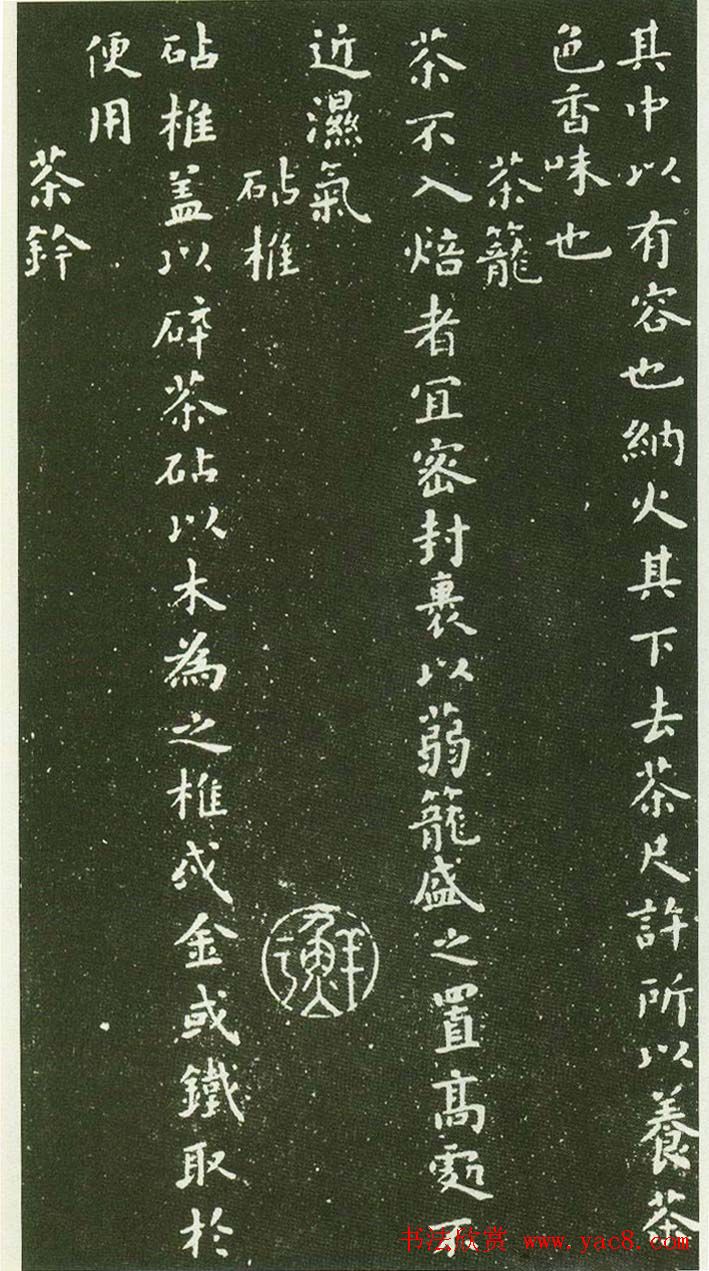 其中以有容也納火其下去茶尺許所以養茶
色香味也
茶籠
茶不入焙者宜密封裹以蒻籠盛之置高處不
近濕氣
砧椎
砧椎蓋以碎茶砧以木為之椎或金或鐵取於
便用
茶鈐
书法欣赏 www.yac8.com